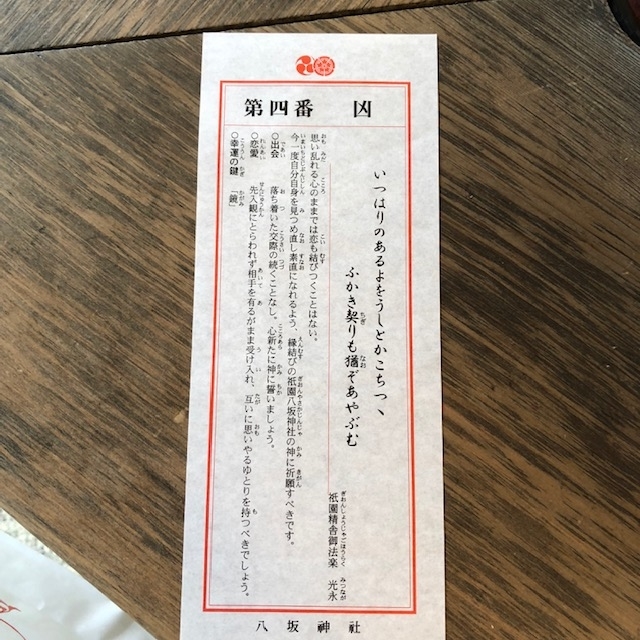 第四番　凶
いつはりのあるよをうしとかこちつゝ
ふかき契りも猶ぞあやぶむ
祇園精舎御法楽　光永
思い乱れる心のままでは恋も結びつくことはない。
今一度自分自身を見つめ直し素直になれるよう、縁結びの祇園八坂神社の神に祈願すべきです。
○出会　落ち着いた交際の続くことなし。心新たに神に誓いましょう。
○恋愛　先入観にとらわれず相手を有るがまま受け入れ、互いに思いやるゆとりを持つべきでしょう。
○幸運の鍵　「鏡」
八坂神社